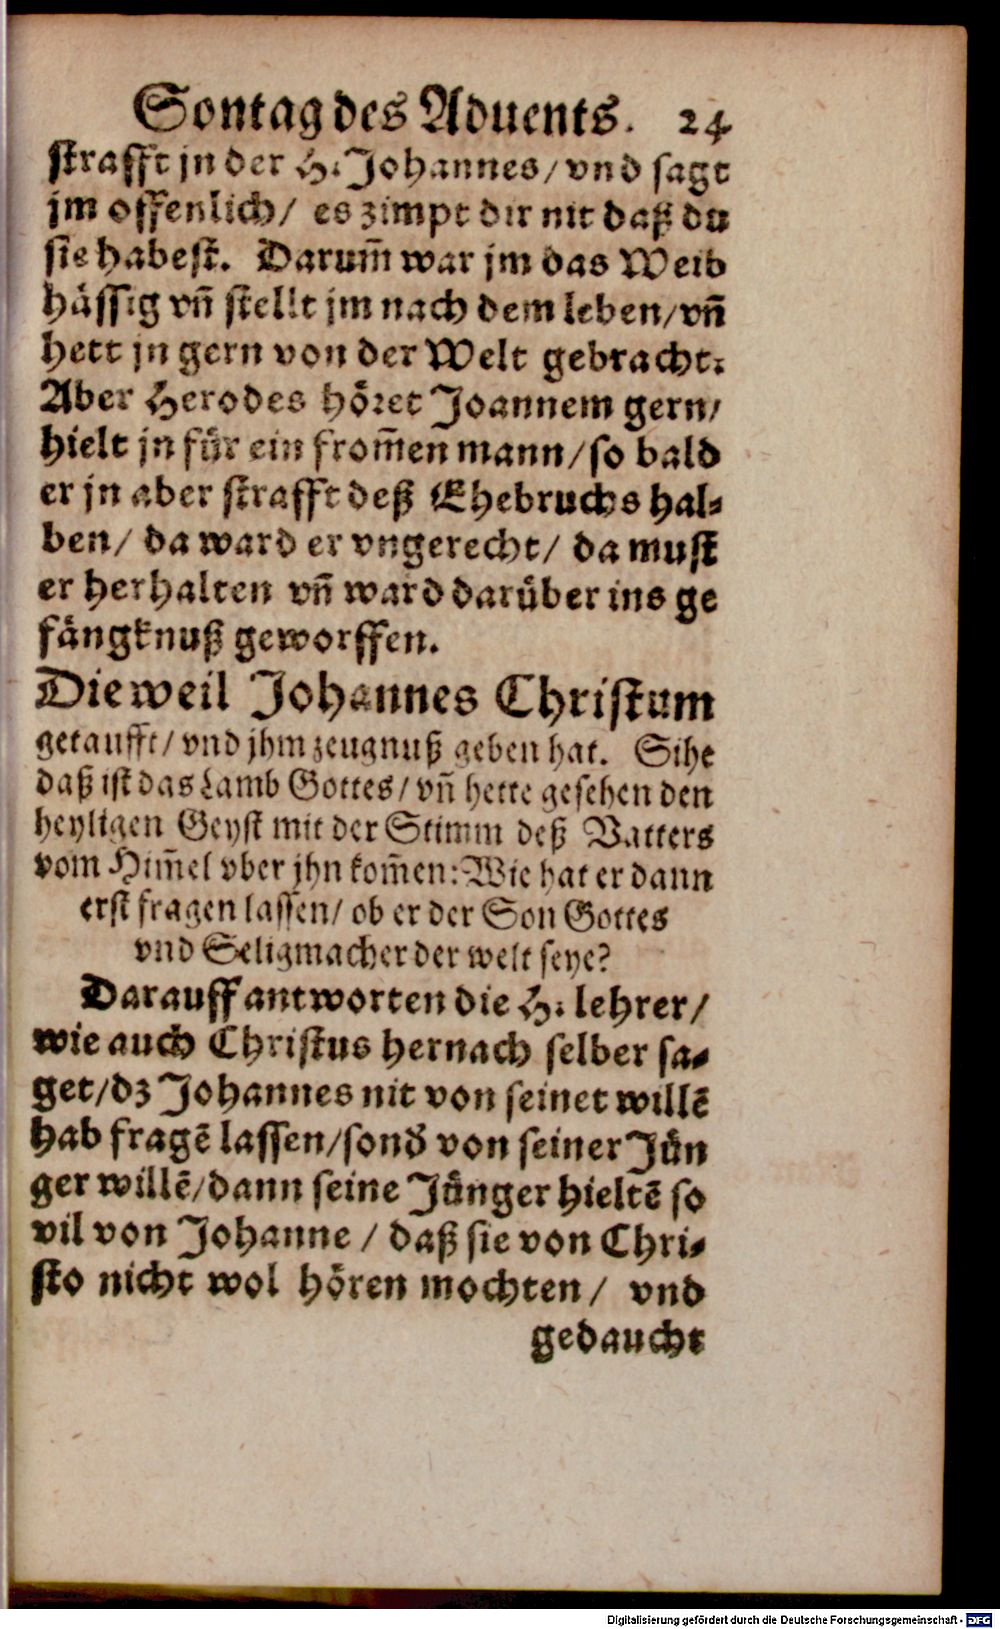 Sontag des Aduents. 24
strafft jn der H. Johannes/ vnd sagt
jm offenlich/ es zimpt dir nit daß du
sie habest. Darum̃ war jm das Weib
hässig vñ stellt jm nach dem leben/ vñ
hett jn gern von der Welt gebracht.
Aber Herodes höret Joannem gern/
hielt jn für ein from̃en mann/ so bald
er jn aber strafft deß Ehebruchs hal-
ben/ da ward er vngerecht/ da must
er herhalten vñ ward darüber ins ge
fängknuß geworffen.
Dieweil Johannes Christum
getaufft/ vnd jhm zeugnuß geben hat. Sihe
daß ist das Lamb Gottes/ vñ hette gesehen den
heyligen Geyst mit der Stimm deß Vatters
vom Him̃el vber jhn kom̃en: Wie hat er dann
erst fragen lassen/ ob er der Son Gottes
vnd Seligmacher der welt seye?
Darauff antworten die H. lehrer/
wie auch Christus hernach selber sa-
get/ dz Johannes nit von seinet willẽ
hab fragẽ lassen/ sond̃ von seiner Jün
ger willẽ/ dann seine Jünger hieltẽ so
vil von Johanne / daß sie von Chri-
sto nicht wol hören mochten/ vnd
gedaucht
Digitalisierung gefördert durch die Deutsche Forschungsgemeinschaft - DFG